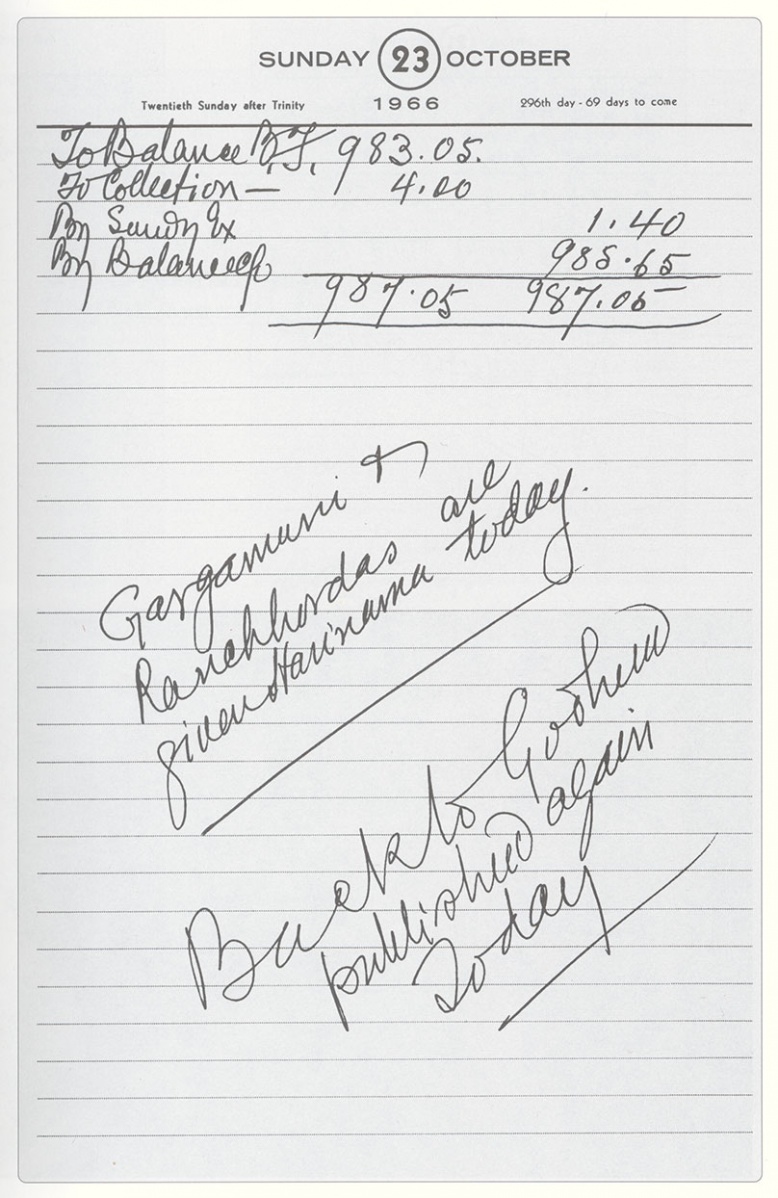 SUNDAY 23 OCTOBER
Twentieth Sunday after Trinity 1966 296th day - 69 days to come
To Balance B.F. 983.05.
To Collection — 4.00
By Sundry Ex 1.40
By Balance c/f 985.65
987.05 987.05
Gargamuni &
Ranchhordas are
given Harinama today.
Back to Godhead
published again
Today